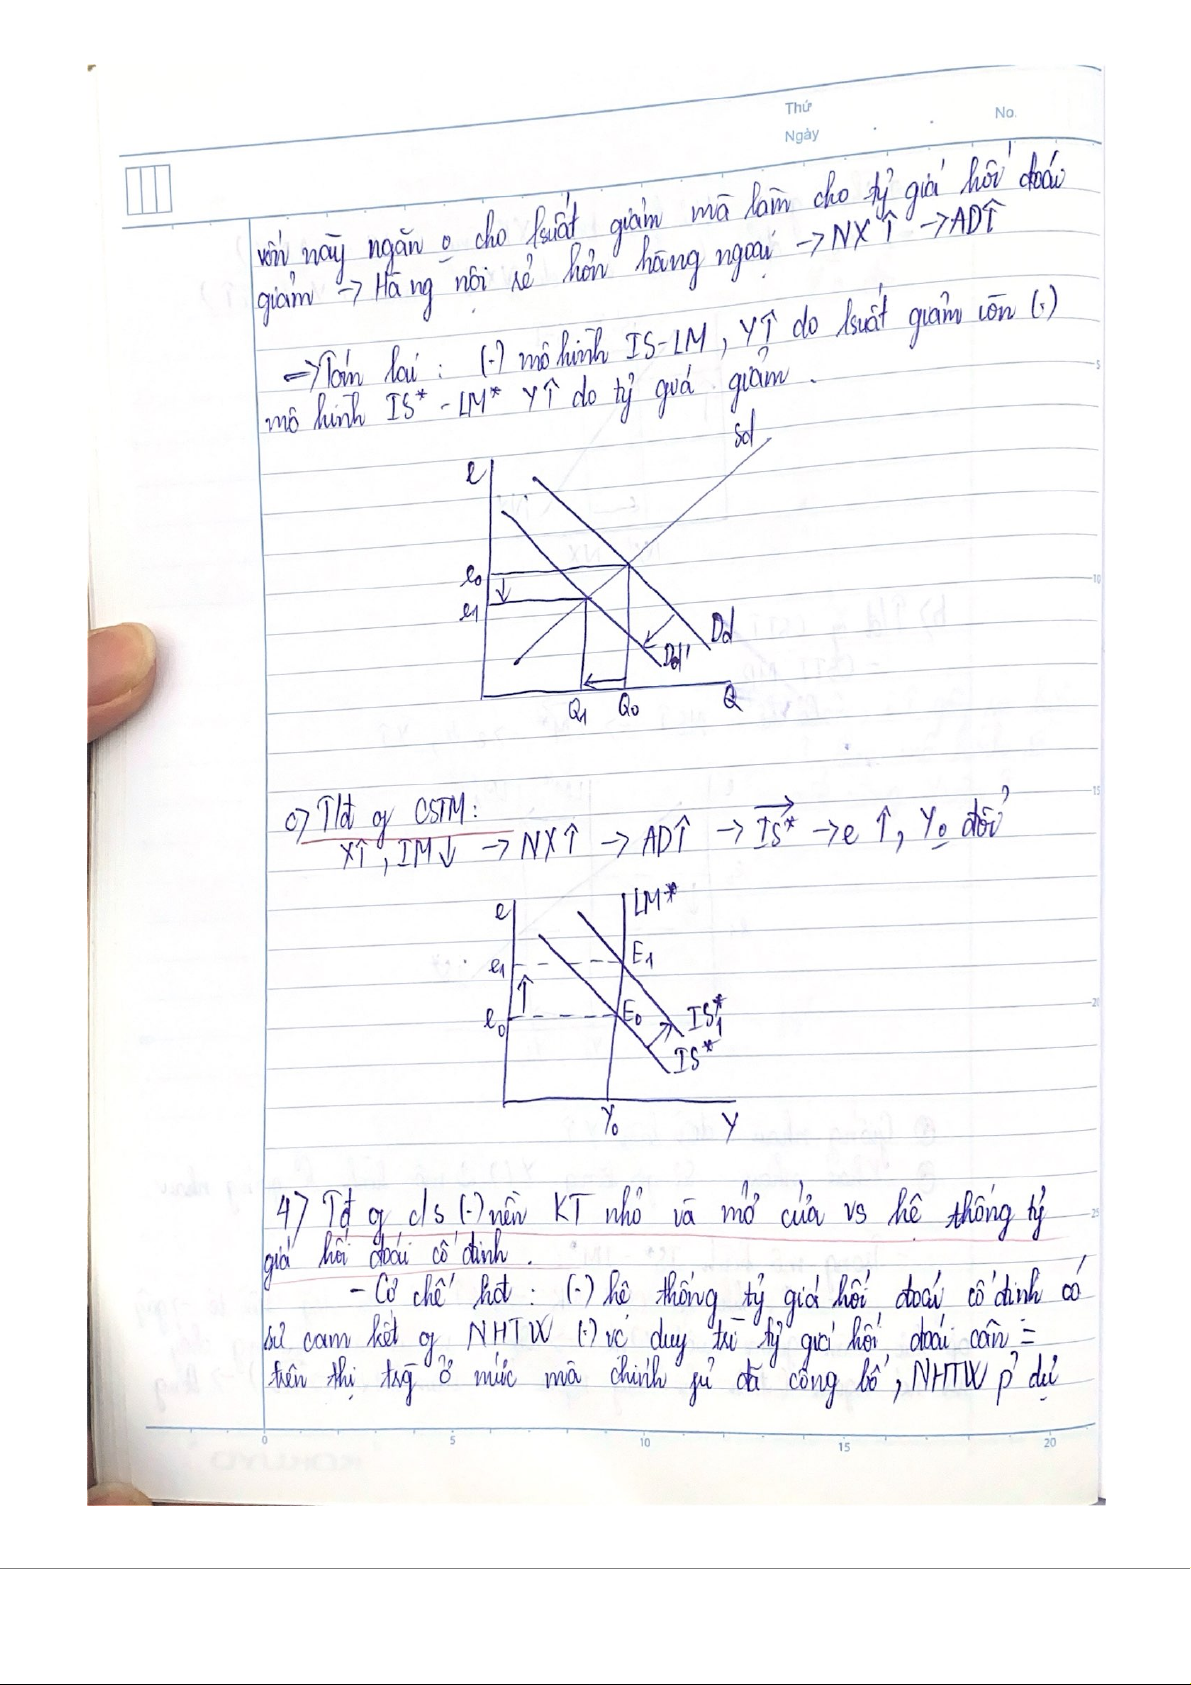 Thứ
No.
Ngày
vốn này ngăn o cho lsuất giảm mà làm cho tỷ giá hối đoái
giảm → Hàng nội rẻ hơn hàng ngoại → NX↑ → AD↑
⇒ Tóm lại : (.) mô hình IS-LM, Y↑ do lsuất giảm còn (.)
mô hình IS* - LM* Y↑ do tỷ giá giảm.
Sd
e
e0
e1
Dd
Dd'
Q1 Q0 Q
c) Tđ of CSTM:
X↑, IM↓ → NX↑ → AD↑ → IS* → e ↑, Y o đổi
e LM*
e1 E1
e0 E0 IS*1
IS*
Y0 Y
4) Tđ of c/s (.) nền KT nhỏ và mở cửa vs hệ thống tỷ
giá hối đoái cố định.
- Cơ chế hđt : (.) hệ thống tỷ giá hối đoái cố định có
sự cam kết of NHTW (.) vc duy trì tỷ giá hối đoái cân =
trên thị trg ở mức mà chính fủ đã công bố, NHTW p' dự
0 5 10 15 20
5
10
15
20
25